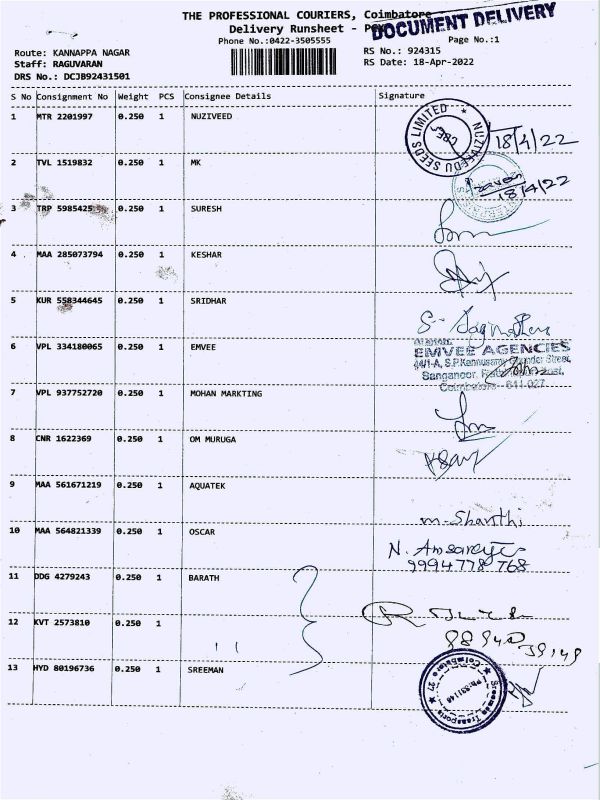 THE PROFESSIONAL COURIERS, Coimbatore
DOCUMENT DELIVERY
Delivery Runsheet -
Phone No.:0422-3505555
Page No.:1
Route: KANNAPPA NAGAR
RS No.: 924315
Staff: RAGUVARAN
RS Date: 18-Apr-2022
DRS No.: DCJB92431501
S No Consignment No Weight PCS Consignee Details Signature
1 MTR 2201997 0.250 1 NUZIVEED
NUZIVEEDU SEEDS LIMITED ★ CBE 18/4/22
2 TVL 1519832 0.250 1 MK
18/4/22
3 TRP 5985425 0.250 1 SURESH
4 MAA 285073794 0.250 1 KESHAR
5 KUR 558344645 0.250 1 SRIDHAR
6 VPL 334180065 0.250 1 EMVEE
EMVEE AGENCIES
Coimbatore - 641 027
7 VPL 937752720 0.250 1 MOHAN MARKTING
8 CNR 1622369 0.250 1 OM MURUGA
9 MAA 561671219 0.250 1 AQUATEK
m. Shanthi
10 MAA 564821339 0.250 1 OSCAR
9994778 768
11 DDG 4279243 0.250 1 BARATH
12 KVT 2573810 0.250 1
13 HYD 80196736 0.250 1 SREEMAN
Sreeman Transports ★ Coimbatore